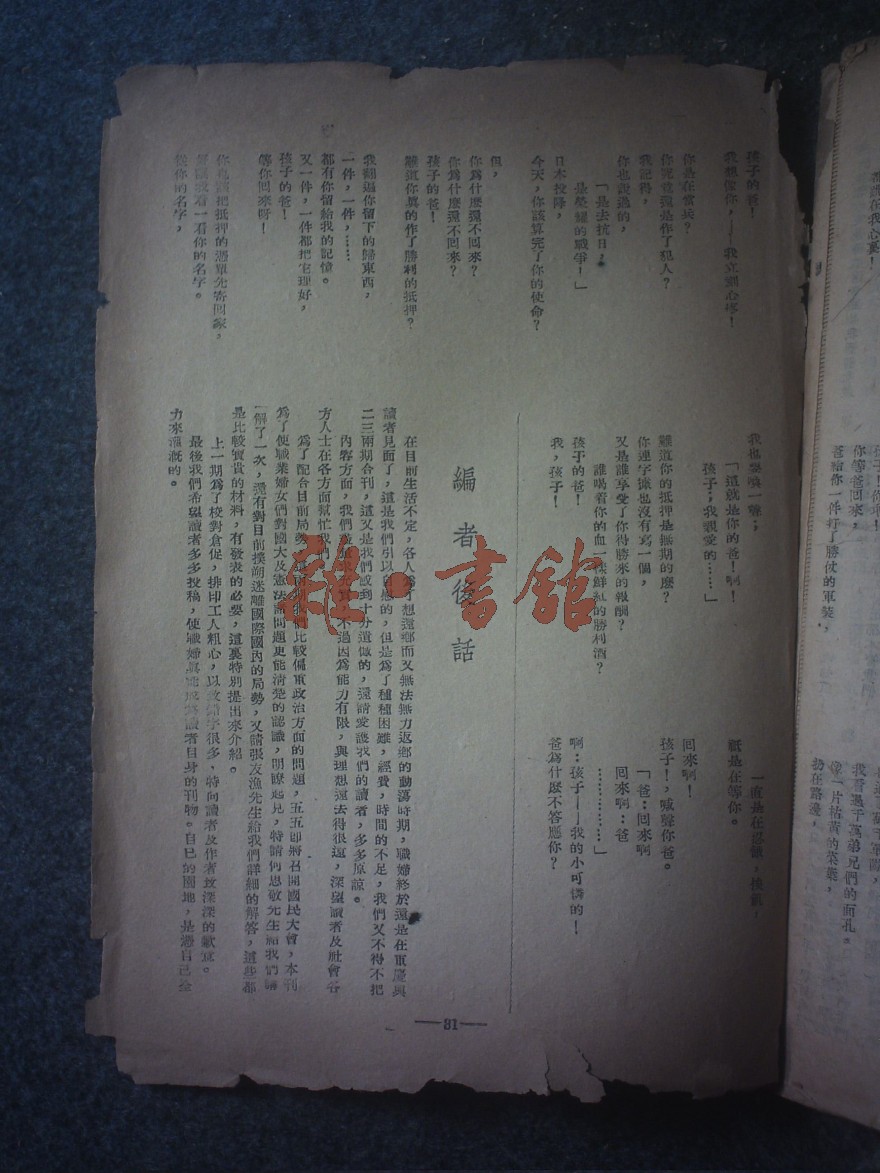 孩子的爸！
我想像你，——我立刻心疼！
你是在當兵？
你究竟還是作了犯人？
我記得，
你也說過的，
「是去抗日，
是榮耀的戰爭！」
日本投降，
今天，你該算完了你的使命？
但，
你為什麼還不回來？
你為什麼還不回來？
孩子的爸！
難道你眞的作了勝利的抵押？
我翻過你留下的歸東西，
一件，一件，……
都有你留給我的記憶。
又一件，一件都把它理好，
孩子的爸！
等你回來呀！
把抵押的憑單先寄回家，
看一看你的名字。
從你的名字，
我也要喚一聲；
「這就是你的爸！啊！
孩子，我親愛的……」
難道你的抵押是無期的麼？
你連字據也沒有寫一個，
又是誰享受了你得勝來的報酬？
誰喝着你的血一樣鮮紅的勝利酒？
孩子的爸！
我，孩子！
一直是在
祇是在等你。
回來啊！
孩子！，喊聲你爸。
「爸：回來啊
回來啊：爸
……………」
啊：孩子——我的小可憐的！
爸爲什麼不答應你？
編者後話
在目前生活不定，各人為了想還鄉而又無法無力返鄉的動蕩時期，職婦終於還是在重慶與
讀者見面了，這是我們引以自慰的，但是為了種種困難，經費，時間的不足，我們又不得不把
二三兩期合刊，這又是我們感到十分遺憾的，還請愛護我們的讀者，多多原諒。
內容方面，我們 不過因爲能力有限，與理想還去得很遠，深望讀者及社會各
方人士在各方面幫忙我們。
為了配合目前局勢，這兩期我們比較偏重政治方面的問題，五五即將召開國民大會，本刊
為了使職業婦女們對國大及憲法諸問題更能清楚的認識，明瞭起見，特請何思敬先生給我們講
解了一次，還有對目前撲朔迷離國際國內的局勢，又請張友漁先生給我們詳細的解答，這些都
是比較寶貴的材料，有發表的必要，這裏特別提出來介紹。
上一期為了校對倉促，排印工人粗心，以致錯字很多，特向讀者及作者致深深的歉意。
最後我們希望讀者多多投稿，使職婦眞能成為讀者自身的刊物。自己的園地，是憑自己全
力來灌漑的。
—31—
龍·書館
你等爸回來，
爸給你一件打了勝仗的軍裝，
弟兄們的面孔。
像一片枯黃的葉葉，
扔在路邊，